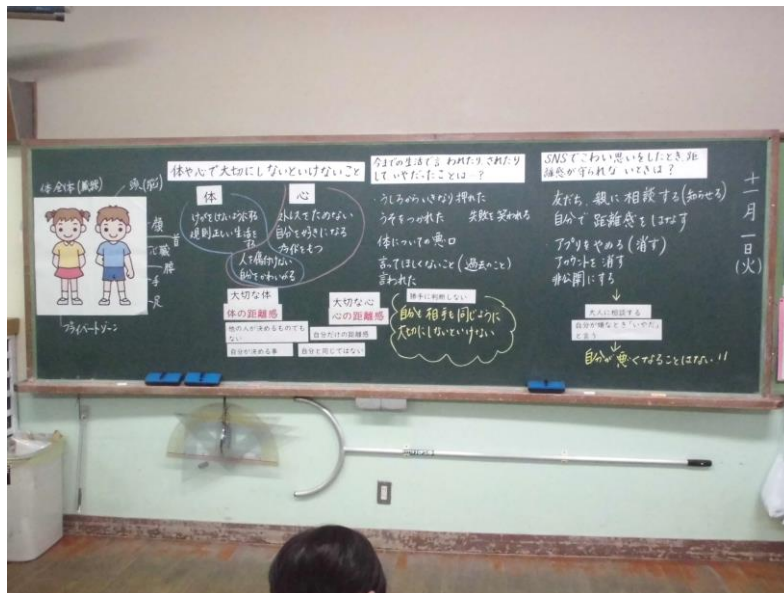 体や心で大切にしないといけないこと
体全体(臓器)
頭(脳)
顔
首
心臓
腰
手
足
プライベートゾーン
体
けがをしないようにする
規則正しい生活をする
心
ストレスをためない
自分を好きになる
プライドをもつ
人を傷付けない
自分をかわいがる
大切な体
体の距離感
他の人が決めるものでもない
自分が決める事
大切な心
心の距離感
自分だけの距離感
自分と同じではない
今までの生活で言われたり、されたりしていやだったことは?
・うしろからいきなり押された
うそをつかれた 失敗を笑われる
体についての悪口
言ってほしくないこと(過去のこと)
言われた
勝手に判断しない
自分も相手も同じように
大切にしないといけない
SNSでこわい思いをしたとき、距離感が守られないときは?
友だち、親に相談する(知らせる)
自分で距離感をはなす
アプリをやめる(消す)
アカウントを消す
非公開にする
大人に相談する
自分が嫌なとき「いやだ」と言う
自分が悪くなることはない!!
十一月一日(火)